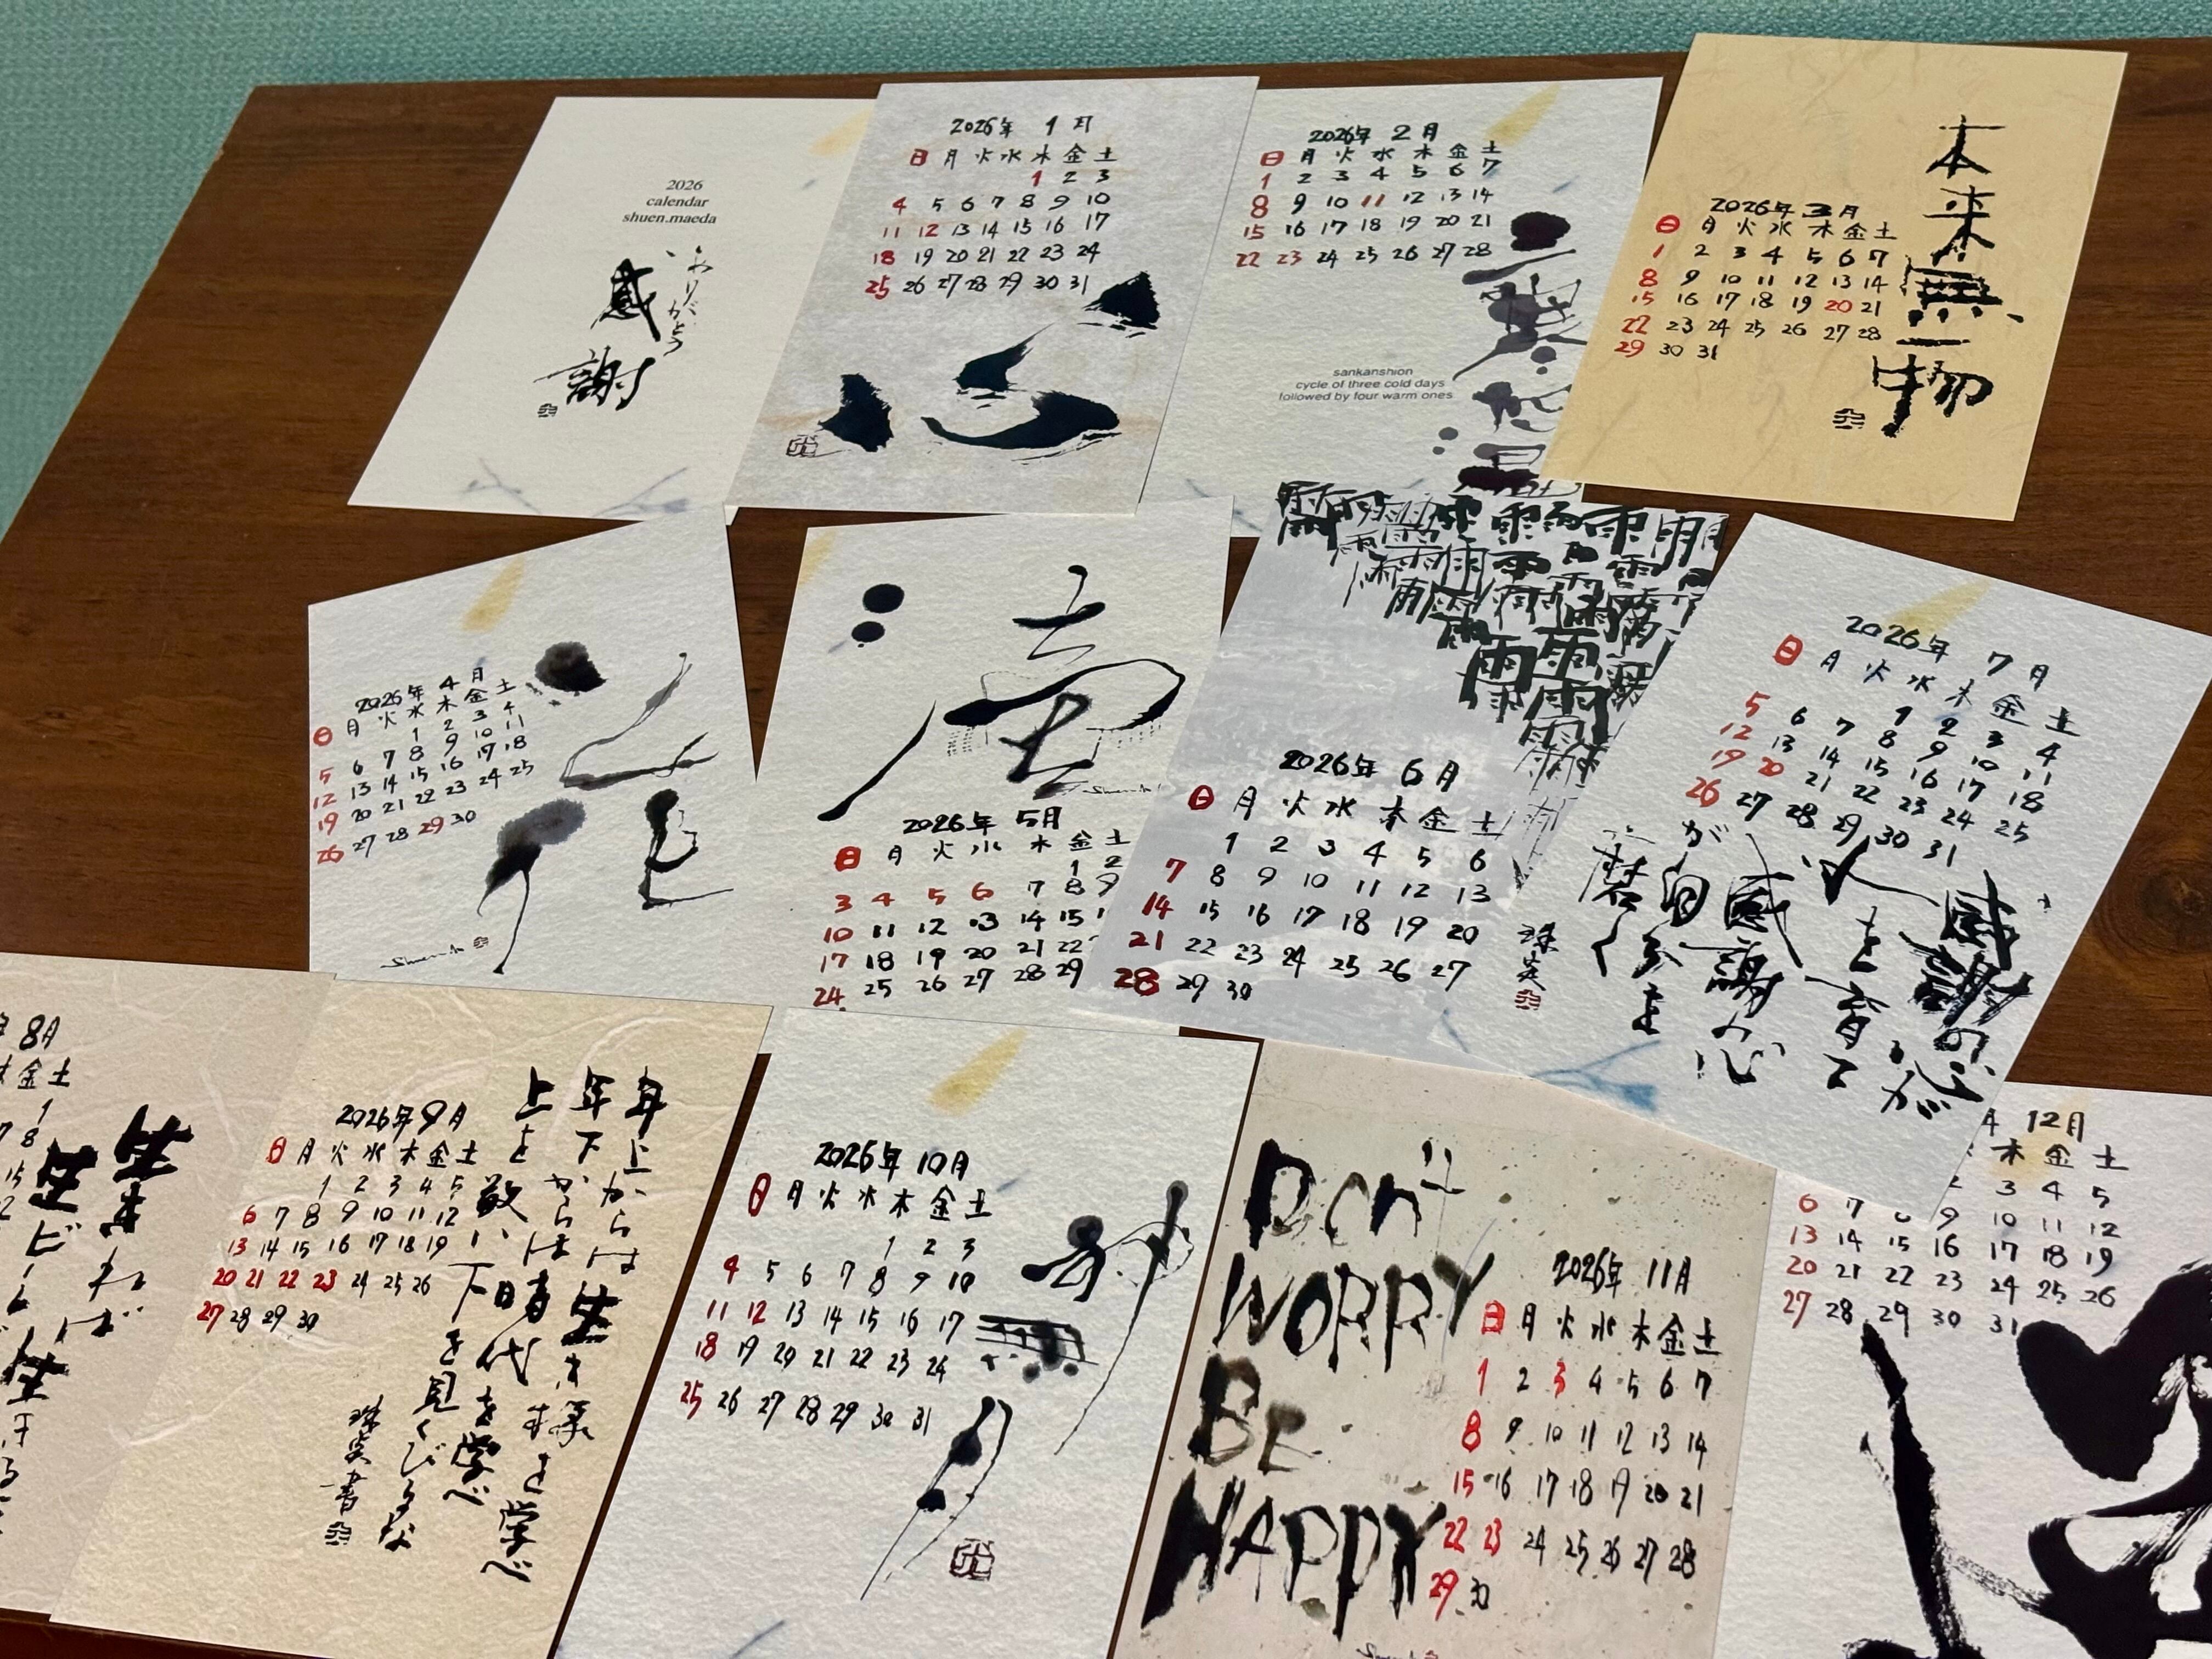 2026
calendar
shuen.maeda
ありがとう
感謝
2026年 1月
日 月 火 水 木 金 土
1 2 3
4 5 6 7 8 9 10
11 12 13 14 15 16 17
18 19 20 21 22 23 24
25 26 27 28 29 30 31
心
2026年 2月
日 月 火 水 木 金 土
1 2 3 4 5 6 7
8 9 10 11 12 13 14
15 16 17 18 19 20 21
22 23 24 25 26 27 28
三寒四温
sankanshion
cycle of three cold days
followed by four warm ones
2026年 3月
日 月 火 水 木 金 土
1 2 3 4 5 6 7
8 9 10 11 12 13 14
15 16 17 18 19 20 21
22 23 24 25 26 27 28
29 30 31
本来無一物
2026年 4月
日 月 火 水 木 金 土
1 2 3 4
5 6 7 8 9 10 11
12 13 14 15 16 17 18
19 20 21 22 23 24 25
26 27 28 29 30
2026年 5月
日 月 火 水 木 金 土
1 2
3 4 5 6 7 8 9
10 11 12 13 14 15
17 18 19 20 21 22
24 25 26 27 28 29
雨 雨 雨 雨 雨 雨 雨
2026年 6月
日 月 火 水 木 金 土
1 2 3 4 5 6
7 8 9 10 11 12 13
14 15 16 17 18 19 20
21 22 23 24 25 26 27
28 29 30
珠英
2026年 7月
日 月 火 水 木 金 土
1 2 3 4
5 6 7 8 9 10 11
12 13 14 15 16 17 18
19 20 21 22 23 24 25
26 27 28 29 30 31
感謝の心が
人を育て
感謝の心
が自分を
磨く
8月
金 土
1
7 8
15
2026年 9月
日 月 火 水 木 金 土
1 2 3 4 5
6 7 8 9 10 11 12
13 14 15 16 17 18 19
20 21 22 23 24 25 26
27 28 29 30
年上からは生き様を学べ
年下からは時代を学べ
上を敬い下を見くびるな
珠英書
2026年 10月
日 月 火 水 木 金 土
1 2 3
4 5 6 7 8 9 10
11 12 13 14 15 16 17
18 19 20 21 22 23 24
25 26 27 28 29 30 31
DON'T
WORRY
BE
HAPPY
2026年 11月
日 月 火 水 木 金 土
1 2 3 4 5 6 7
8 9 10 11 12 13 14
15 16 17 18 19 20 21
22 23 24 25 26 27 28
29 30
12月
木 金 土
3 4 5
6 7 9 10 11 12
13 14 15 16 17 18 19
20 21 22 23 24 25 26
27 28 29 30 31